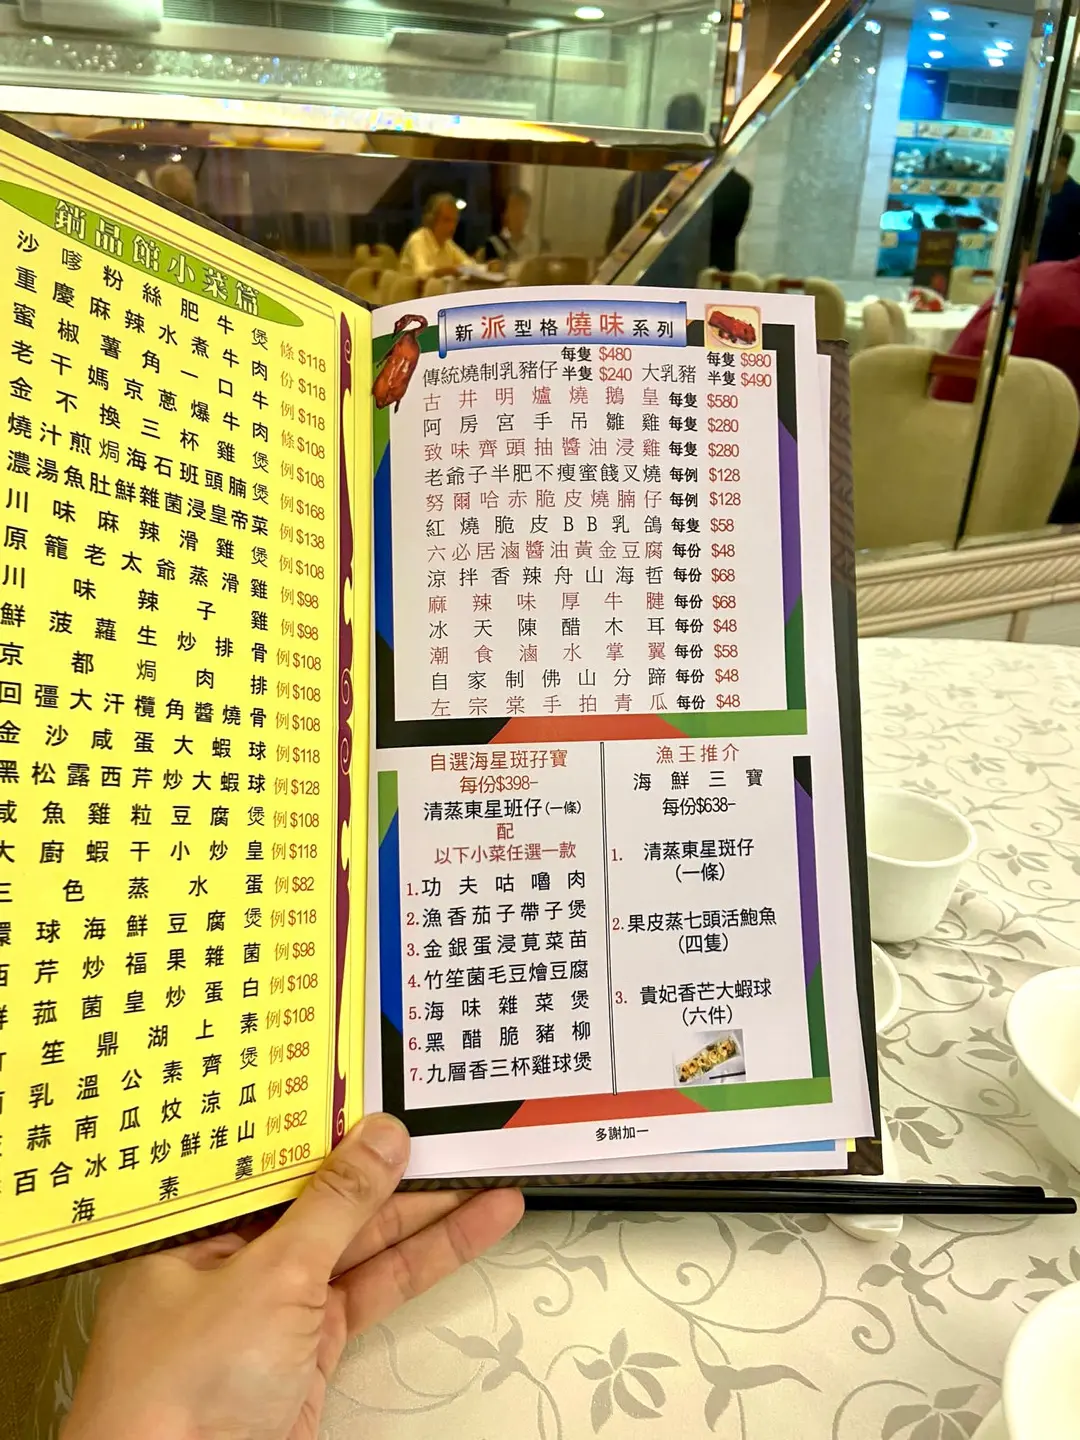 鍋品館小菜篇
沙嗲粉絲肥牛煲 條$118
重慶麻辣水煮牛肉 份$118
蜜椒薯角一口牛 例$118
老干媽京蔥爆牛肉 條$108
金不換三杯雞煲 例$108
燒汁煎焗海石班頭腩煲 例$168
濃湯魚肚鮮雜菌浸皇帝菜 例$138
川味麻辣滑雞煲 例$108
原籠老太爺蒸滑雞 例$98
川味辣子雞 例$98
鮮菠蘿生炒排骨 例$108
京都焗肉排 例$108
回彊大汗欖角醬燒骨 例$108
金沙咸蛋大蝦球 例$118
黑松露西芹炒大蝦球 例$128
咸魚雞粒豆腐煲 例$108
大廚蝦干小炒皇 例$118
三色蒸水蛋 例$82
環球海鮮豆腐煲 例$118
西芹炒福果雜菌 例$98
鮮菰菌皇炒蛋白 例$108
笙鼎湖上素 例$108
乳溫公素齊煲 例$88
蒜南瓜炆涼瓜 例$88
百合冰耳炒鮮淮山 例$82
海素羹 例$108
新派型格燒味系列
傳統燒制乳豬仔 每隻 $480 半隻 $240 大乳豬 每隻 $980 半隻 $490
古井明爐燒鵝皇 每隻 $580
阿房宮手吊雛雞 每隻 $280
致味齊頭抽醬油浸雞 每隻 $280
老爺子半肥不瘦蜜餞叉燒 每例 $128
努爾哈赤脆皮燒腩仔 每例 $128
紅燒脆皮BB乳鴿 每隻 $58
六必居滷醬油黃金豆腐 每份 $48
涼拌香辣舟山海哲 每份 $68
麻辣味厚牛腱 每份 $68
冰天陳醋木耳 每份 $48
潮食滷水掌翼 每份 $58
自家制佛山分蹄 每份 $48
左宗棠手拍青瓜 每份 $48
自選海星斑孖寶
每份$398-
清蒸東星班仔(一條)
配
以下小菜任選一款
1.功夫咕嚕肉
2.漁香茄子帶子煲
3.金銀蛋浸莧菜苗
4.竹笙菌毛豆燴豆腐
5.海味雜菜煲
6.黑醋脆豬柳
7.九層香三杯雞球煲
漁王推介
海鮮三寶
每份$638-
1. 清蒸東星斑仔
(一條)
2.果皮蒸七頭活鮑魚
(四隻)
3. 貴妃香芒大蝦球
(六件)
多謝加一